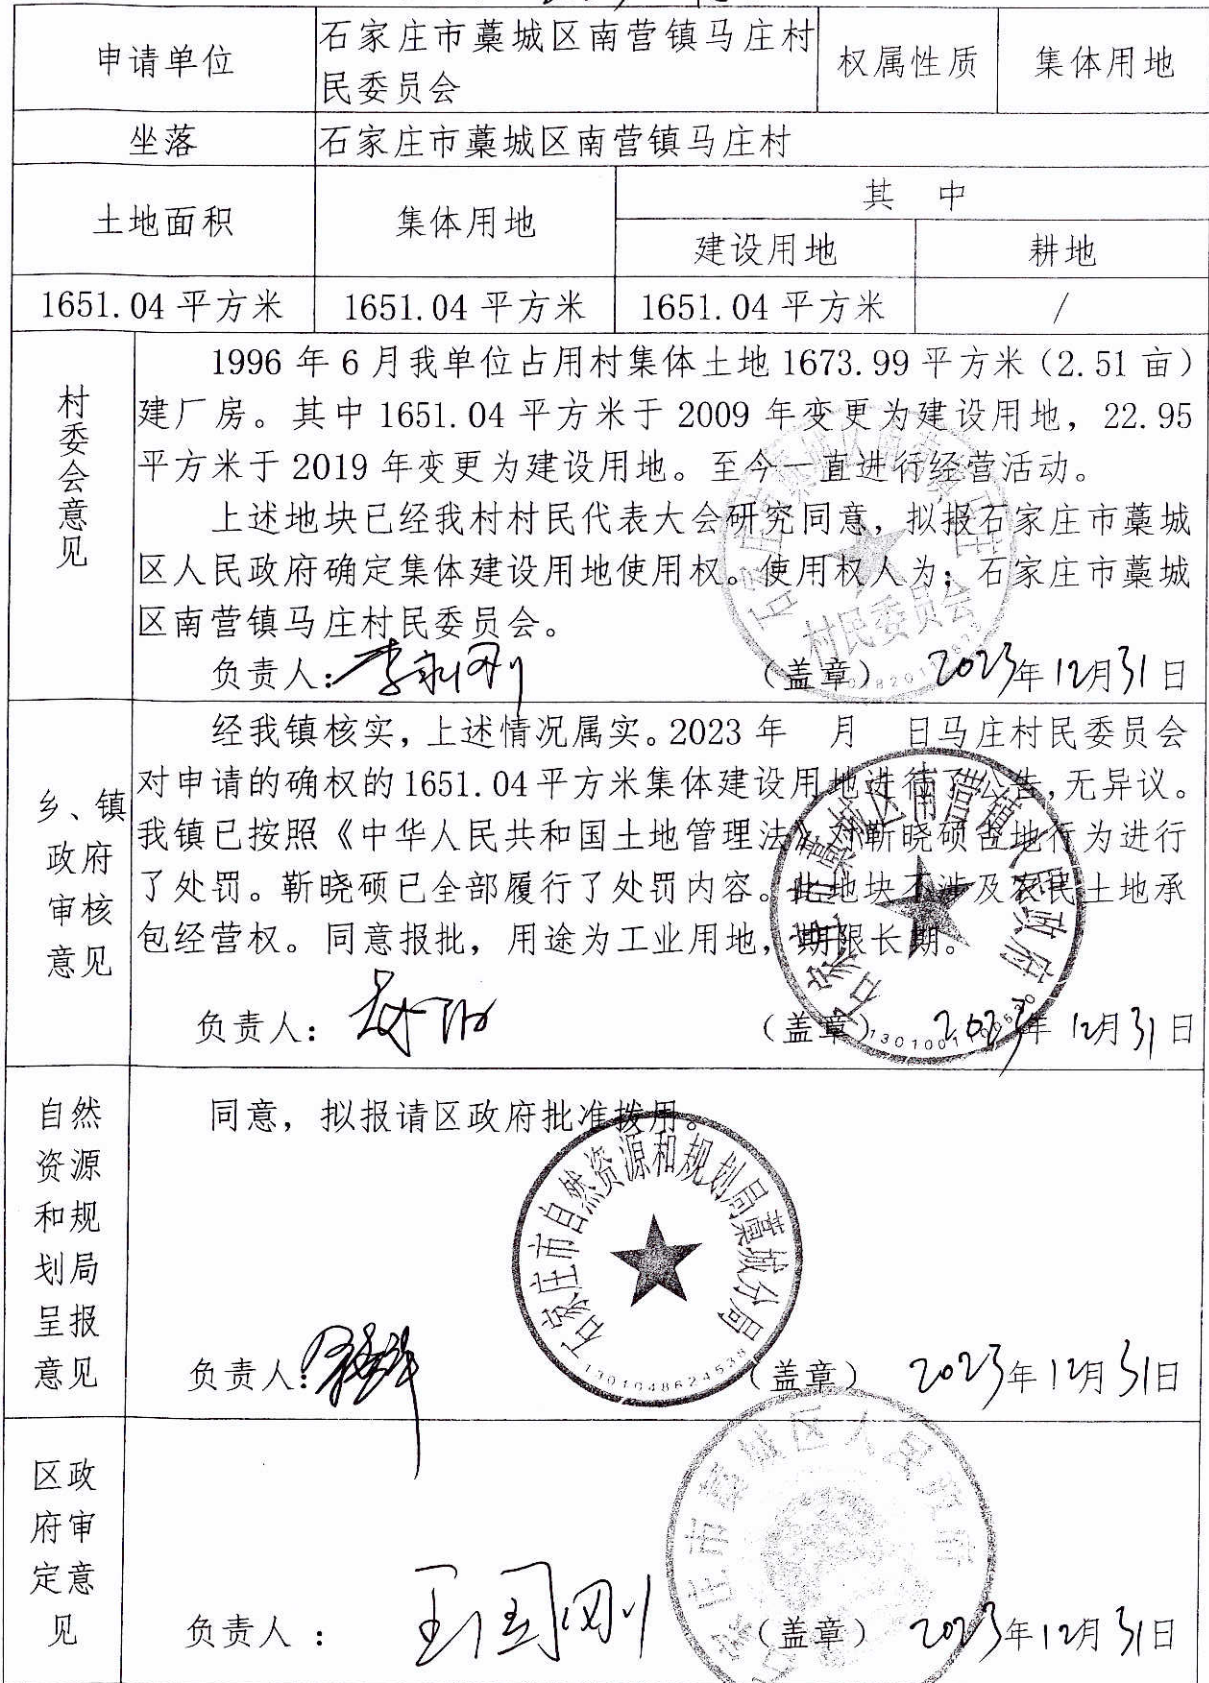 申请单位 石家庄市藁城区南营镇马庄村民委员会 权属性质 集体用地
坐落 石家庄市藁城区南营镇马庄村
土地面积 集体用地 其 中
建设用地 耕地
1651.04平方米 1651.04平方米 1651.04平方米 /
村委会意见
1996年6月我单位占用村集体土地1673.99平方米（2.51亩）
建厂房。其中1651.04平方米于2009年变更为建设用地，22.95
平方米于2019年变更为建设用地。至今一直进行经营活动。
上述地块已经我村村民代表大会研究同意，拟报石家庄市藁城
区人民政府确定集体建设用地使用权。使用权人为：石家庄市藁城
区南营镇马庄村民委员会。
村民委员会
负责人： （盖章） 2023年12月31日
乡、镇政府审核意见
经我镇核实，上述情况属实。2023年 月 日马庄村民委员会
对申请的确权的1651.04平方米集体建设用地进行了公告，无异议。
我镇已按照《中华人民共和国土地管理法》对靳晓硕占地行为进行
了处罚。靳晓硕已全部履行了处罚内容。此地块不涉及农民土地承
包经营权。同意报批，用途为工业用地，期限长期。
负责人： （盖章） 2023年12月31日
自然资源和规划局呈报意见
同意，拟报请区政府批准拨用。
石家庄市自然资源和规划局藁城分局
1301048624538
负责人： （盖章） 2023年12月31日
区政府审定意见
石家庄市藁城区人民政府
负责人： 王国刚 （盖章） 2023年12月31日